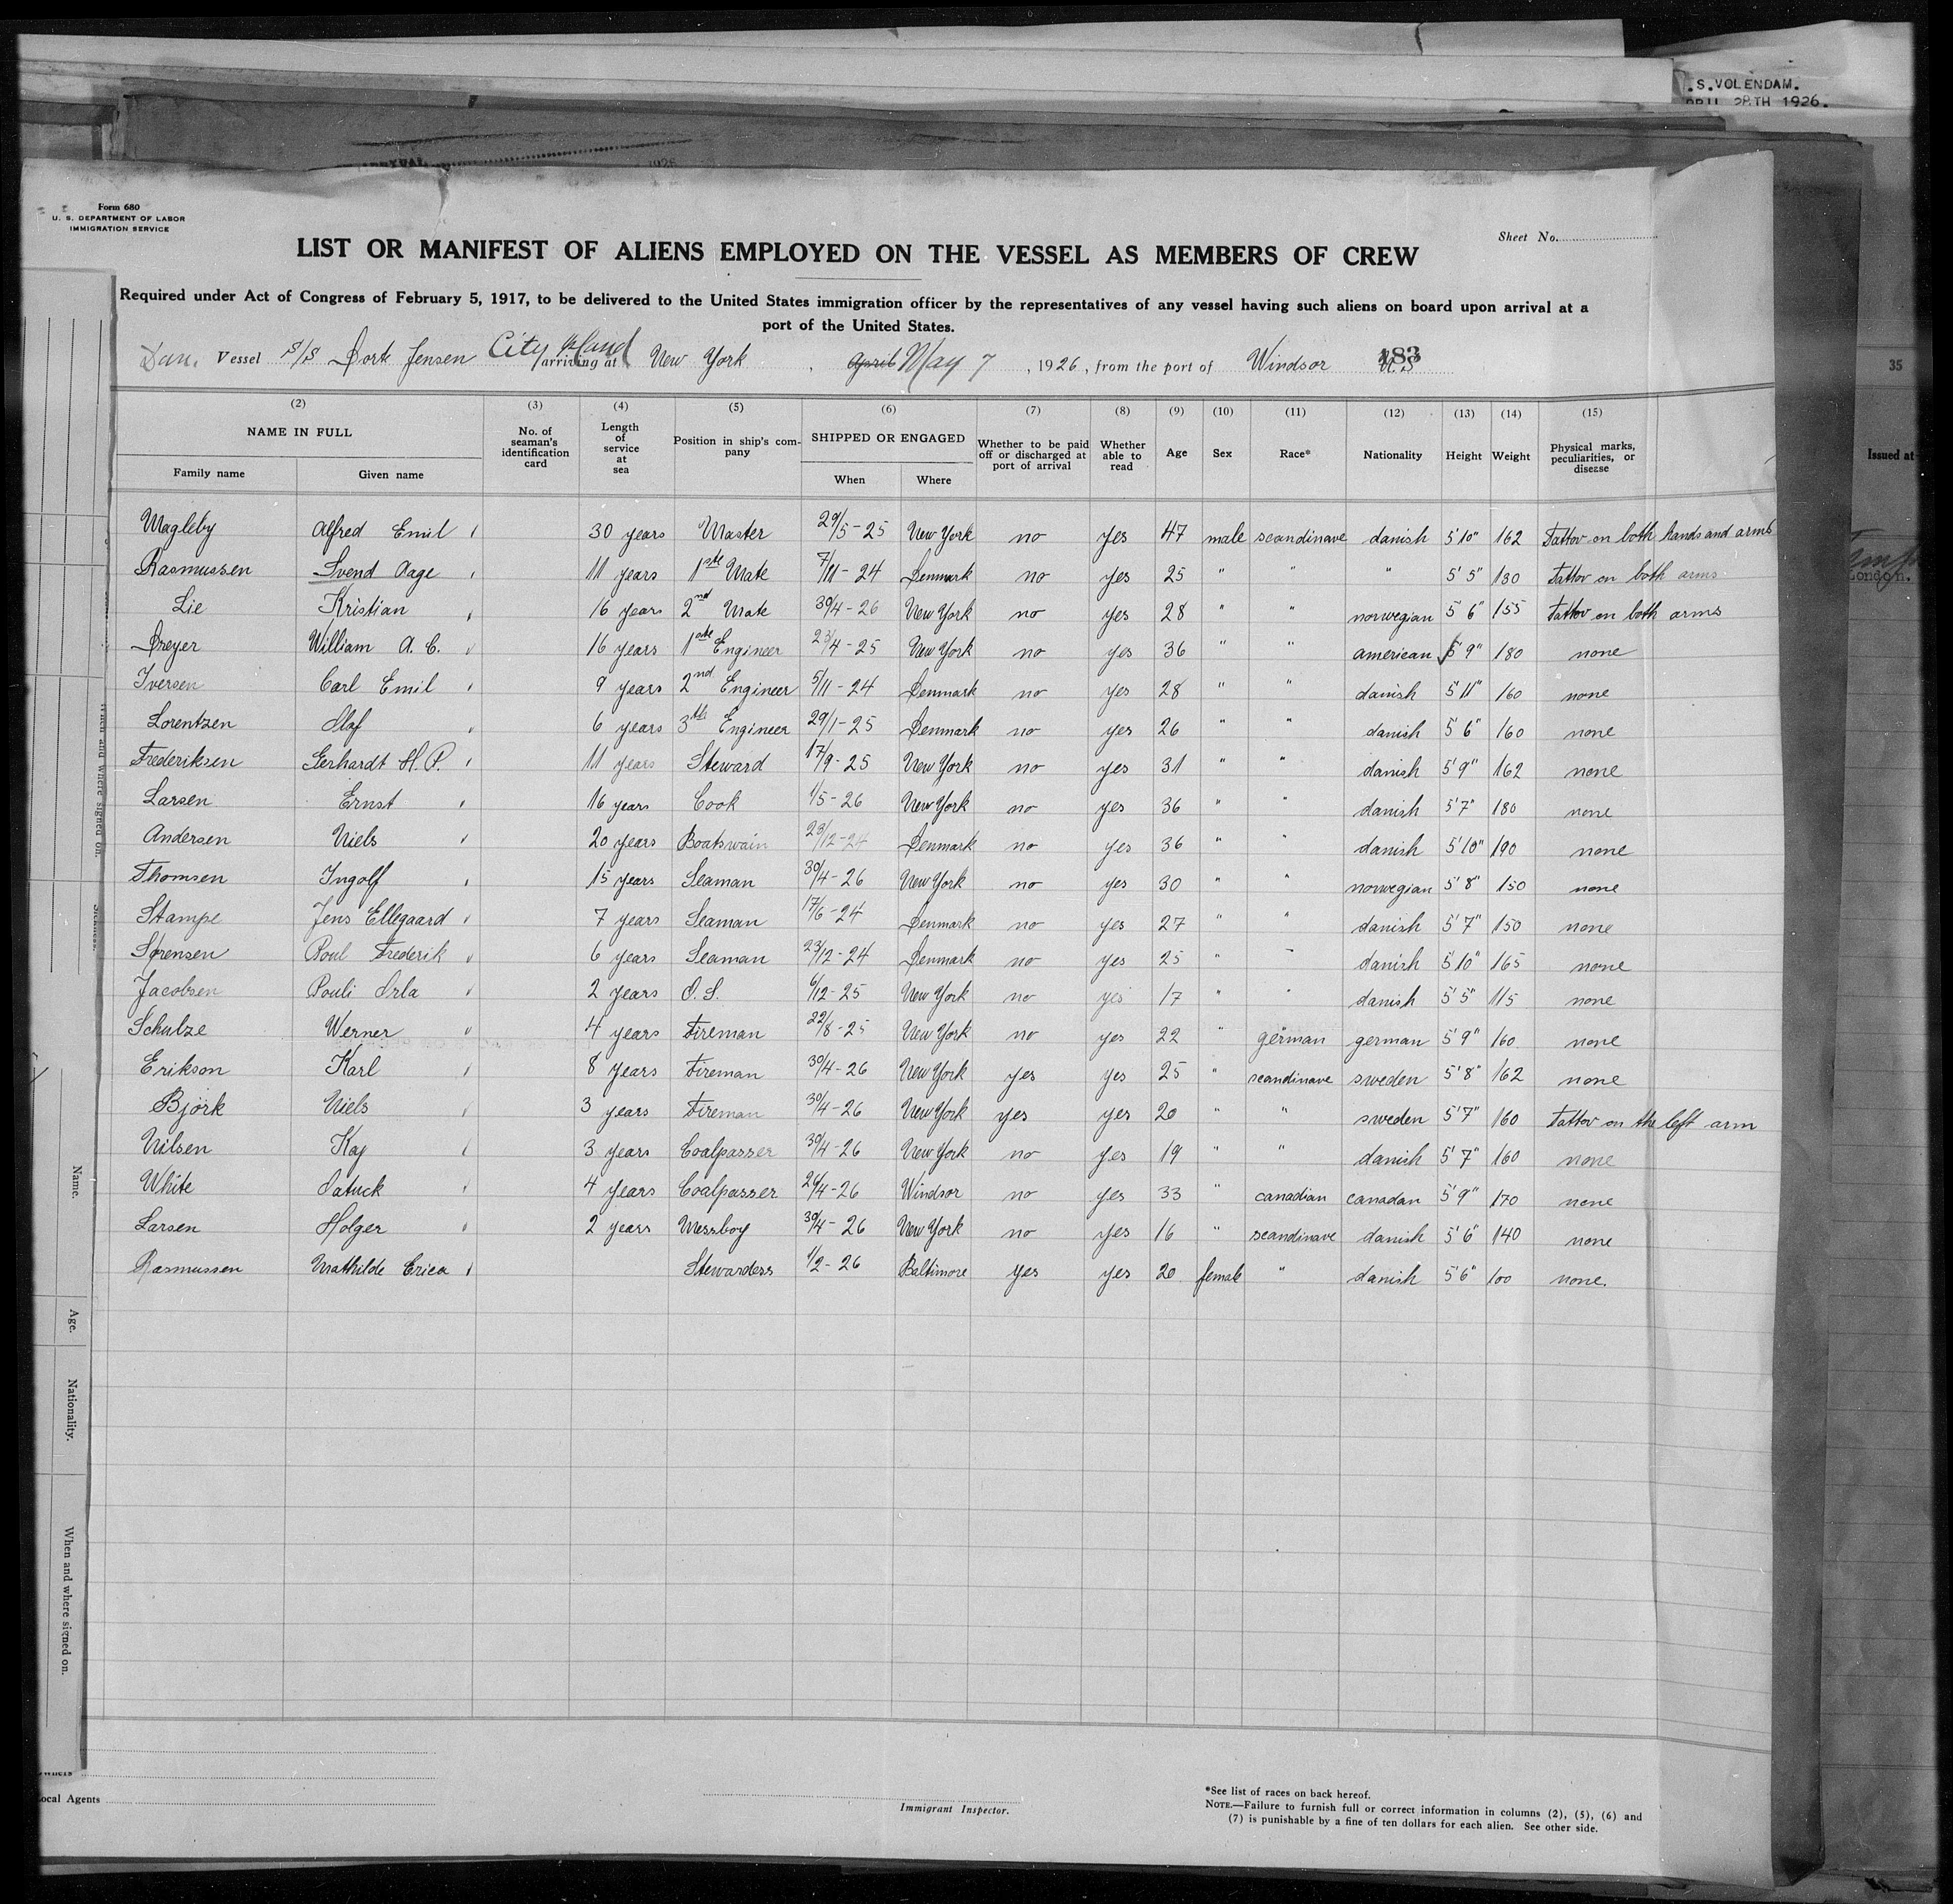 .S.VOLENDAM.
APRIL 28TH 1926.
1926
Form 680
U. S. DEPARTMENT OF LABOR
IMMIGRATION SERVICE
Sheet No.
LIST OR MANIFEST OF ALIENS EMPLOYED ON THE VESSEL AS MEMBERS OF CREW
Required under Act of Congress of February 5, 1917, to be delivered to the United States immigration officer by the representatives of any vessel having such aliens on board upon arrival at a
port of the United States.
Dan. Vessel S/S Dorte Jensen City Island arriving at New York, April May 7, 1926, from the port of Windsor N.S 183
35
(2) (3) (4) (5) (6) (7) (8) (9) (10) (11) (12) (13) (14) (15)
NAME IN FULL No. of seaman's identification card Length of service at sea Position in ship's company SHIPPED OR ENGAGED Whether to be paid off or discharged at port of arrival Whether able to read Age Sex Race* Nationality Height Weight Physical marks, peculiarities, or disease
Family name Given name When Where
Issued at
London.
Magleby Alfred Emil 30 years Master 29/5-25 New York no yes 47 male scandinave danish 5'10" 162 Tattov on both hands and arms
Rasmussen Svend Aage 11 years 1ste Mate 7/11-24 Denmark no yes 25 " " " 5'5" 130 Tattov on both arms
Lie Kristian 16 years 2nd Mate 30/4-26 New York no yes 28 " " norwegian 5'6" 155 Tattov on both arms
Dreyer William A. C. 16 years 1ste Engineer 23/4-25 New York no yes 36 " " american 5'9" 180 none
Iversen Carl Emil 9 years 2nd Engineer 5/11-24 Denmark no yes 28 " " danish 5'11" 160 none
Lorentzen Olaf 6 years 3th Engineer 29/1-25 Denmark no yes 26 " " danish 5'6" 160 none
Frederiksen Gerhardt H. P. 11 years Steward 17/9-25 New York no yes 31 " " danish 5'9" 162 none
Larsen Ernst 16 years Cook 1/5-26 New York no yes 36 " " danish 5'7" 180 none
Andersen Niels 20 years Boatswain 23/12-24 Denmark no yes 36 " " danish 5'10" 190 none
Thomsen Ingolf 15 years Seaman 30/4-26 New York no yes 30 " " norwegian 5'8" 150 none
Stampe Jens Ellegaard 7 years Seaman 17/6-24 Denmark no yes 27 " " danish 5'7" 150 none
Sørensen Poul Frederik 6 years Seaman 23/12-24 Denmark no yes 25 " " danish 5'10" 165 none
Jacobsen Pouli Orla 2 years O. S. 6/12-25 New York no yes 17 " " danish 5'5" 115 none
Schulze Werner 4 years Fireman 22/8-25 New York no yes 22 " german german 5'9" 160 none
Erikson Karl 8 years Fireman 30/4-26 New York yes yes 25 " scandinave sweden 5'8" 162 none
Björk Niels 3 years Fireman 30/4-26 New York yes yes 20 " " sweden 5'7" 160 Tattov on the left arm
Nilsen Kaj 3 years Coalpasser 30/4-26 New York no yes 19 " " danish 5'7" 160 none
White 4 years Coalpasser 26/4-26 Windsor no yes 33 " canadian canadan 5'9" 170 none
Larsen Holger 2 years Messboy 30/4-26 New York no yes 16 " scandinave danish 5'6" 140 none
Rasmussen Mathilde Erica Stewardess 1/2-26 Baltimore yes yes 20 female " danish 5'6" 100 none.
when and where signed on.
Sickness.
Name.
Age.
Nationality.
When and where signed on.
Owners
Local Agents
Immigrant Inspector.
*See list of races on back hereof.
NOTE.—Failure to furnish full or correct information in columns (2), (5), (6) and
(7) is punishable by a fine of ten dollars for each alien. See other side.